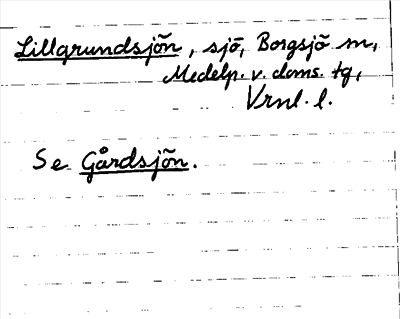 Lillgrundsjön, sjö, Borgsjö sn,
Medelp. v. doms. tg,
Vrnl. l.
Se Gårdsjön.